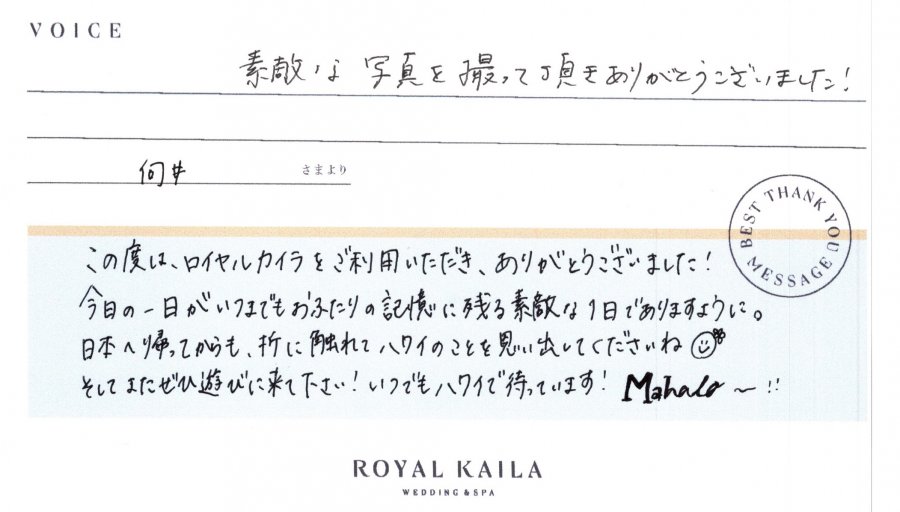 VOICE
素敵な写真を撮って頂きありがとうございました!
向井 さまより
BEST THANK YOU MESSAGE
この度は、ロイヤルカイラをご利用いただき、ありがとうございました!
今日の一日がいつまでもおふたりの記憶に残る素敵な1日でありますように。
日本へ帰ってからも、折に触れてハワイのことを思い出してくださいね
そしてまたぜひ遊びに来て下さい!いつでもハワイで待っています! Mahalo ~!!
ROYAL KAILA
WEDDING & SPA